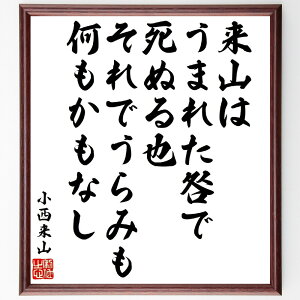 来山は
うまれた咎で
死ぬる也
それでうらみも
何もかもなし
小西来山